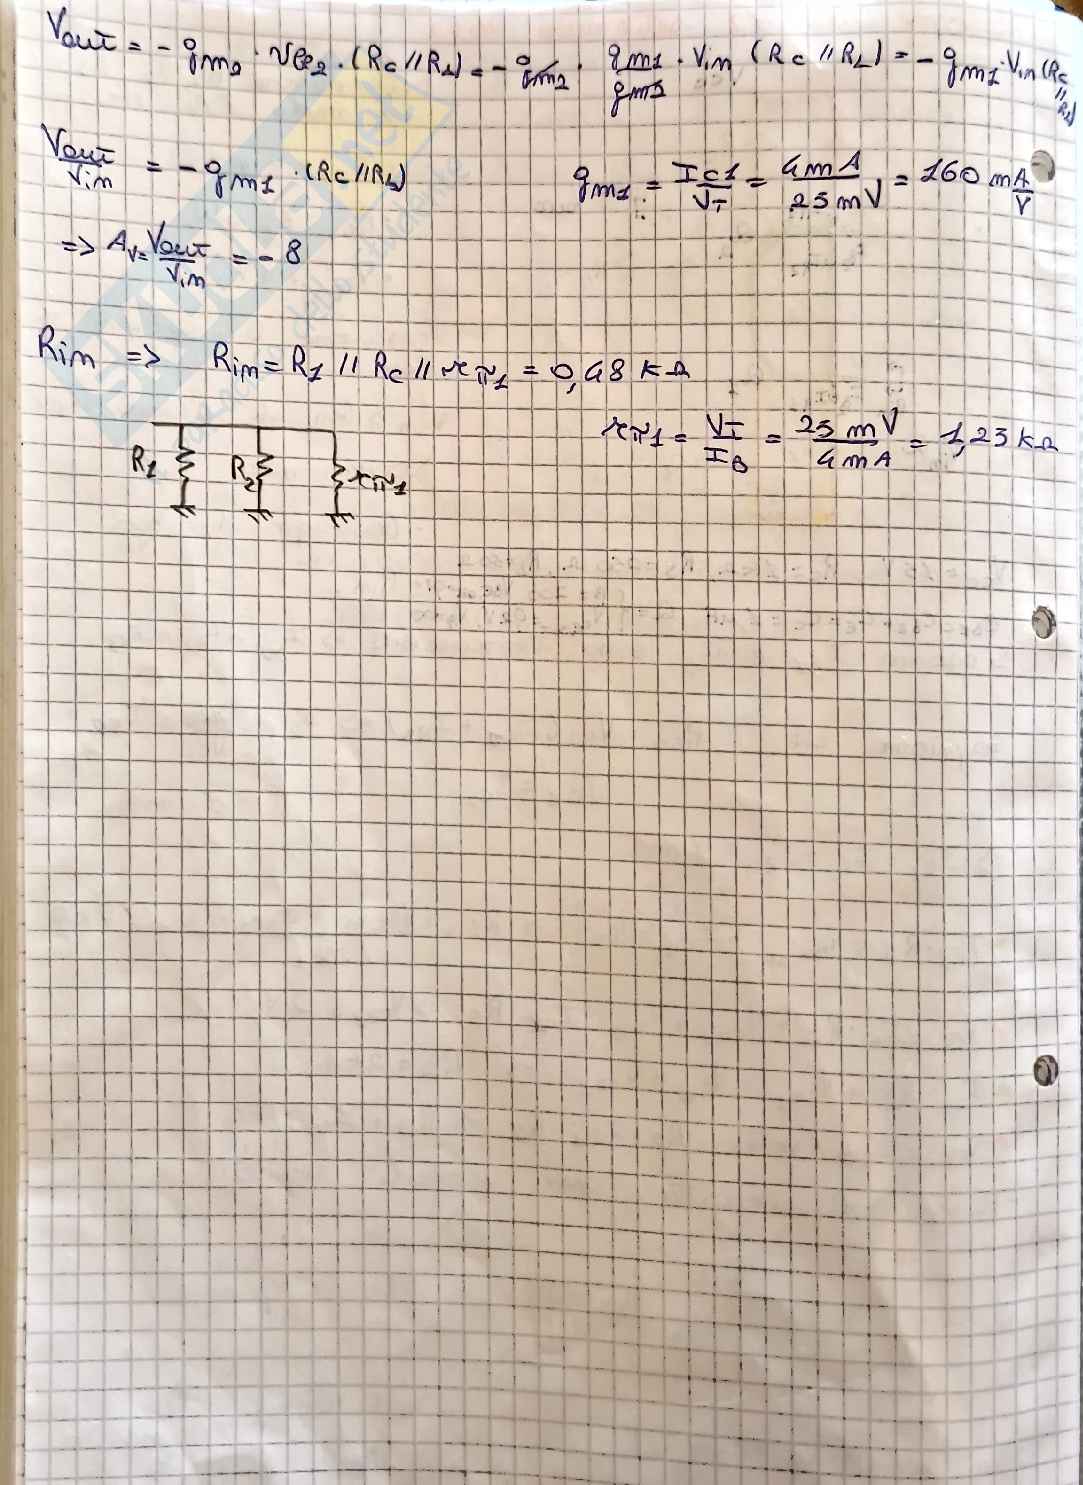 Vout = - gm2 · Vπ2 · (Rc // RL) = - gm2 · gm1/gm2 · Vin (Rc // RL) = - gm1 · Vin (Rc // RL)
Vout/Vin = - gm1 · (Rc // RL)
gm1 = Ic1/VT = 4mA/25mV = 160 mA/V
=> Av = Vout/Vin = - 8
Rin => Rin = R1 // Rc // rπ1 = 0,48 KΩ
rπ1 = VT/IB = 25 mV/4mA = 1,25 KΩ
R1 R2 rπ1
SKUOLA.net